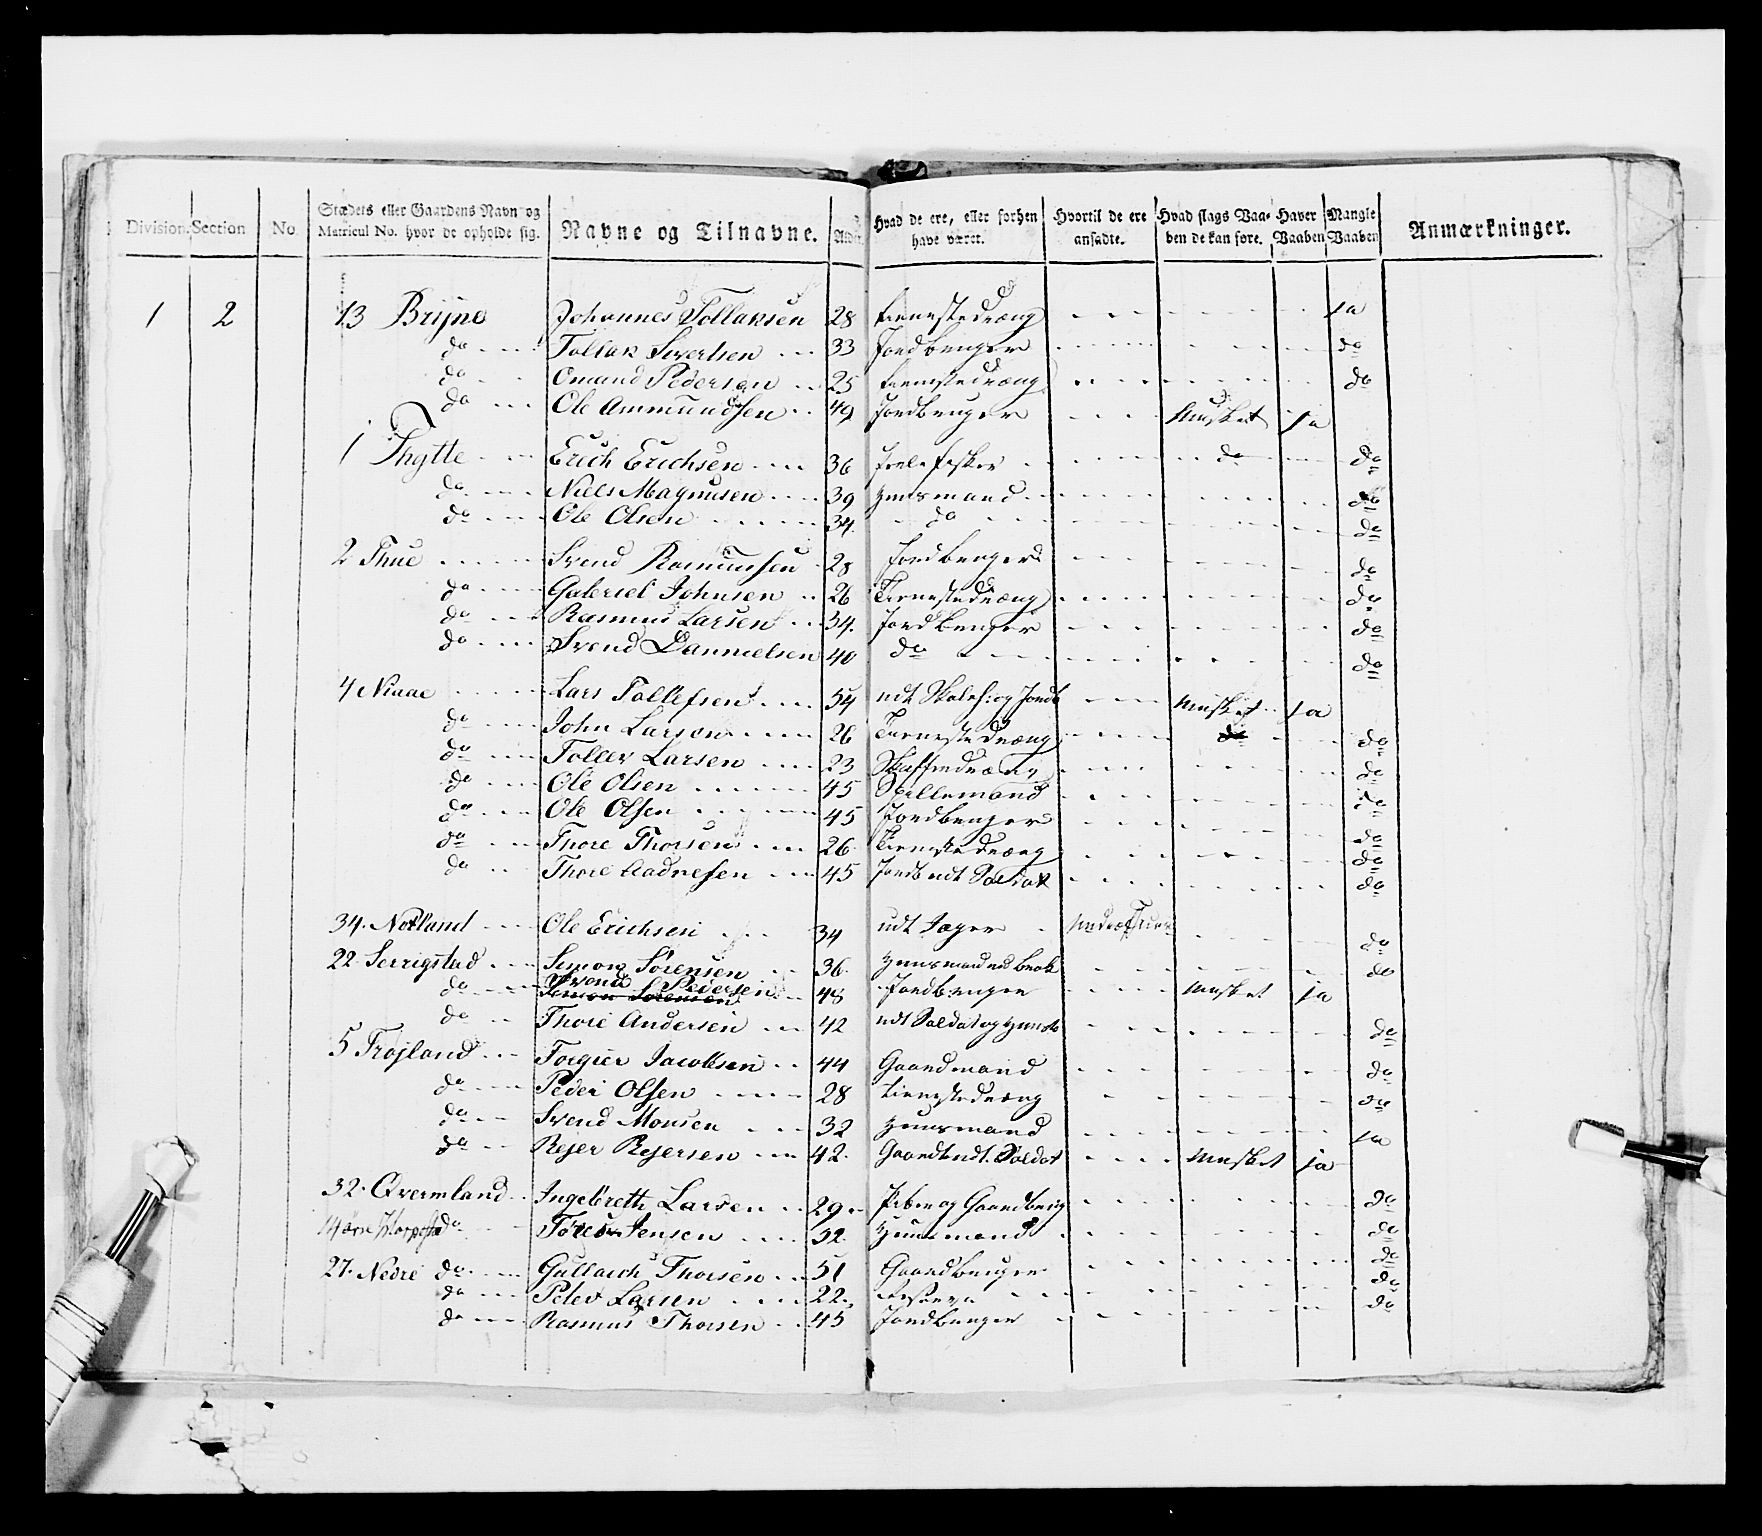 Division. Section No. Stædets eller Gaardens Navn og Matricul No. hvor de opholde sig. Navne og Tilnavne. Alder. Hvad de ere, eller forhen have været. Hvortil de ere ansadte. Hvad slags Vaaben de kan føre. Haver Vaaben Mangle Vaaben Anmærkninger.
1 2 13 Brijne Johannes Tollaksen 28 tienestedræng ja
do Tollak Sivertsen 33 Jordbruger do
do Omund Pedersen 25 tienestedræng do
do Ole Ammundsen 49 Jordbruger Musket ja
1 Thytte Erich Erichsen 36 do do
do Niels Magnusen 39 Huusmand do
do Ole Olsen 34 do do
2 Thue Svend Rasmussen 28 Jordbruger do
do Gabriel Johnsen 26 Tienestedræng do
do Rasmus Larsen 34. Jordbruger do
do Svend Dannielsen 40 do do
4 Niaae Lars Tollefsen 54 udt Musket ja
do John Larsen 26 Tienestedræng do
do Tollev Larsen 23 do
do Ole Olsen 45 Spillemand do
do Ole Olsen 45 Jordbruger do
do Thore Thorsen 26 Tienestedræng do
do Thore Aadnesen 45 Jordb udt Soldat do
34. Norland Ole Erichsen 34 udt Jæger Underofficer do
22 Serrigstad Simon Sørensen 36 do
do Svend Pedersen 48 Jordbruger Musket ja
do Thore Andersen 42 udt Soldat og Huusm do
5 Trøjland Torgier Jacobsen 44 Gaardmand do
do Peder Olsen 28 tienestedræng do
do Svend Monsen 32 Huusmand ja
do Rejer Rejersen 42. Gaardb udt. Soldat Musket ja
32. Qvermland Ingebreth Larsen 29 og Gaardbrug do
14 do Tøres Jensen 32 Huusmand do
27. Nedre do Gullach Thorsen 51 Gaardbruger do
do Peter Larsen 22 do
do Rasmus Thorsen 45 Jordbruger do